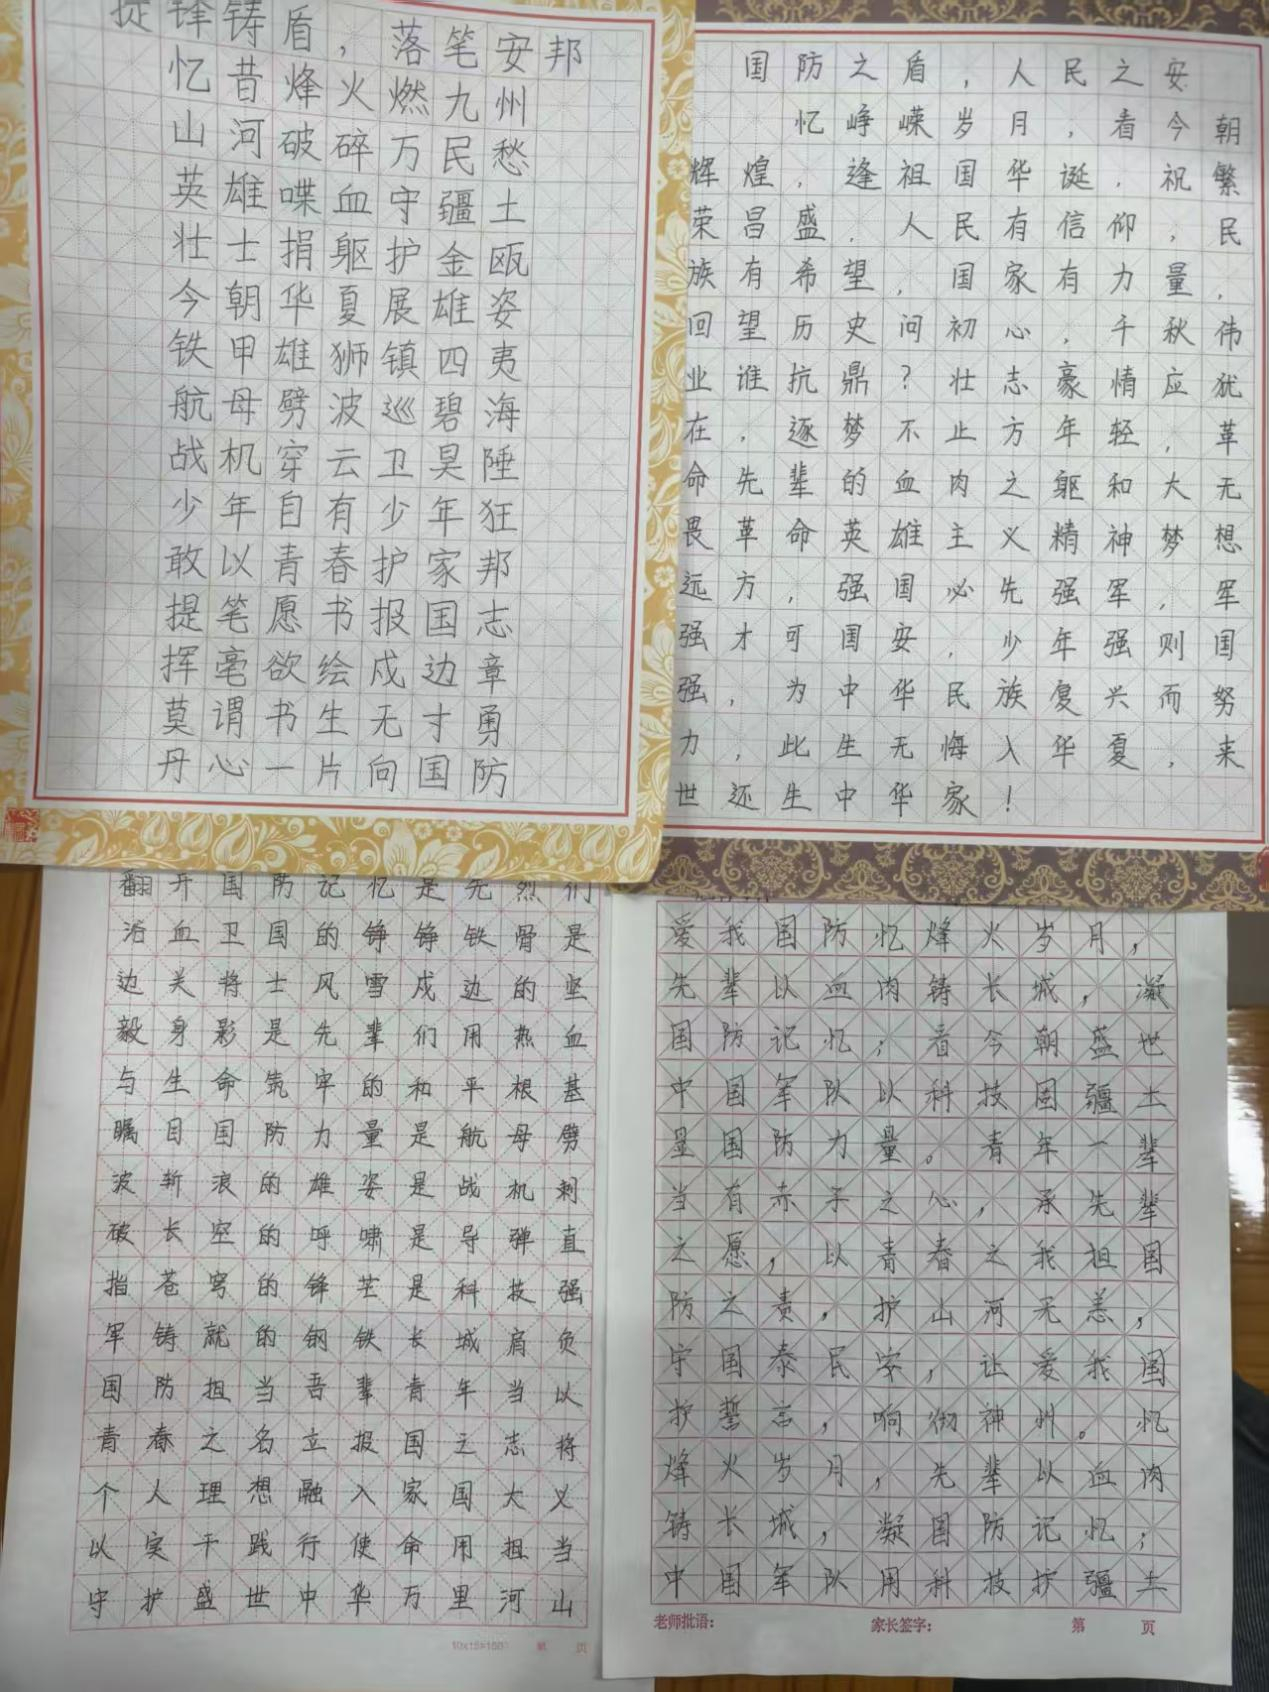 提锋铸盾，落笔安邦
忆昔烽火燃九州
山河破碎万民愁
英雄喋血守疆土
壮士捐躯护金瓯
今朝华夏展雄姿
铁甲雄狮镇四夷
航母劈波巡碧海
战机穿云卫昊陲
少年自有少年狂
敢以青春护家邦
提笔愿书报国志
挥毫欲绘戍边章
莫谓书生无才勇
丹心一片向国防
国防之盾，人民之安
忆峥嵘岁月，看今朝
辉煌，逢祖国华诞，祝繁
荣昌盛，人民有信仰，民
族有希望，国家有力量，
回望历史问初心，千秋伟
业谁抗鼎？壮志豪情应犹
在，逐梦不止方年轻，革
命先辈的血肉之躯和大无
畏革命英雄主义精神梦想
远方，强国必先强军，军
强才可国安，少年强则国
强，为中华民族复兴而努
力，此生无悔入华夏，来
世还生中华家！
翻开国防记忆是先烈们
浴血卫国的铮铮铁骨是
边关将士风雪戍边的坚
毅身影是先辈们用热血
与生命筑牢的和平根基
瞩目国防力量是航母劈
波斩浪的雄姿是战机刺
破长空的呼啸是导弹直
指苍穹的锋芒是科技强
军铸就的钢铁长城肩负
国防担当吾辈青年当以
青春之名立报国之志将
个人理想融入家国大义
以实干践行使命用担当
守护盛世中华万里河山
10x15=150 第 页
爱我国防忆烽火岁月，
先辈以血肉铸长城，凝
国防记忆；看今朝盛世
中国军队以科技固疆土
显国防力量。青年一辈
当有赤子之心，承先辈
之愿，以青春之我担国
防之责，护山河无恙，
守国泰民安，让爱我国
护誓言，响彻神州。忆
烽火岁月，先辈以血肉
铸长城，凝国防记忆；
中国军队用科技护疆土
老师批语： 家长签字： 第 页